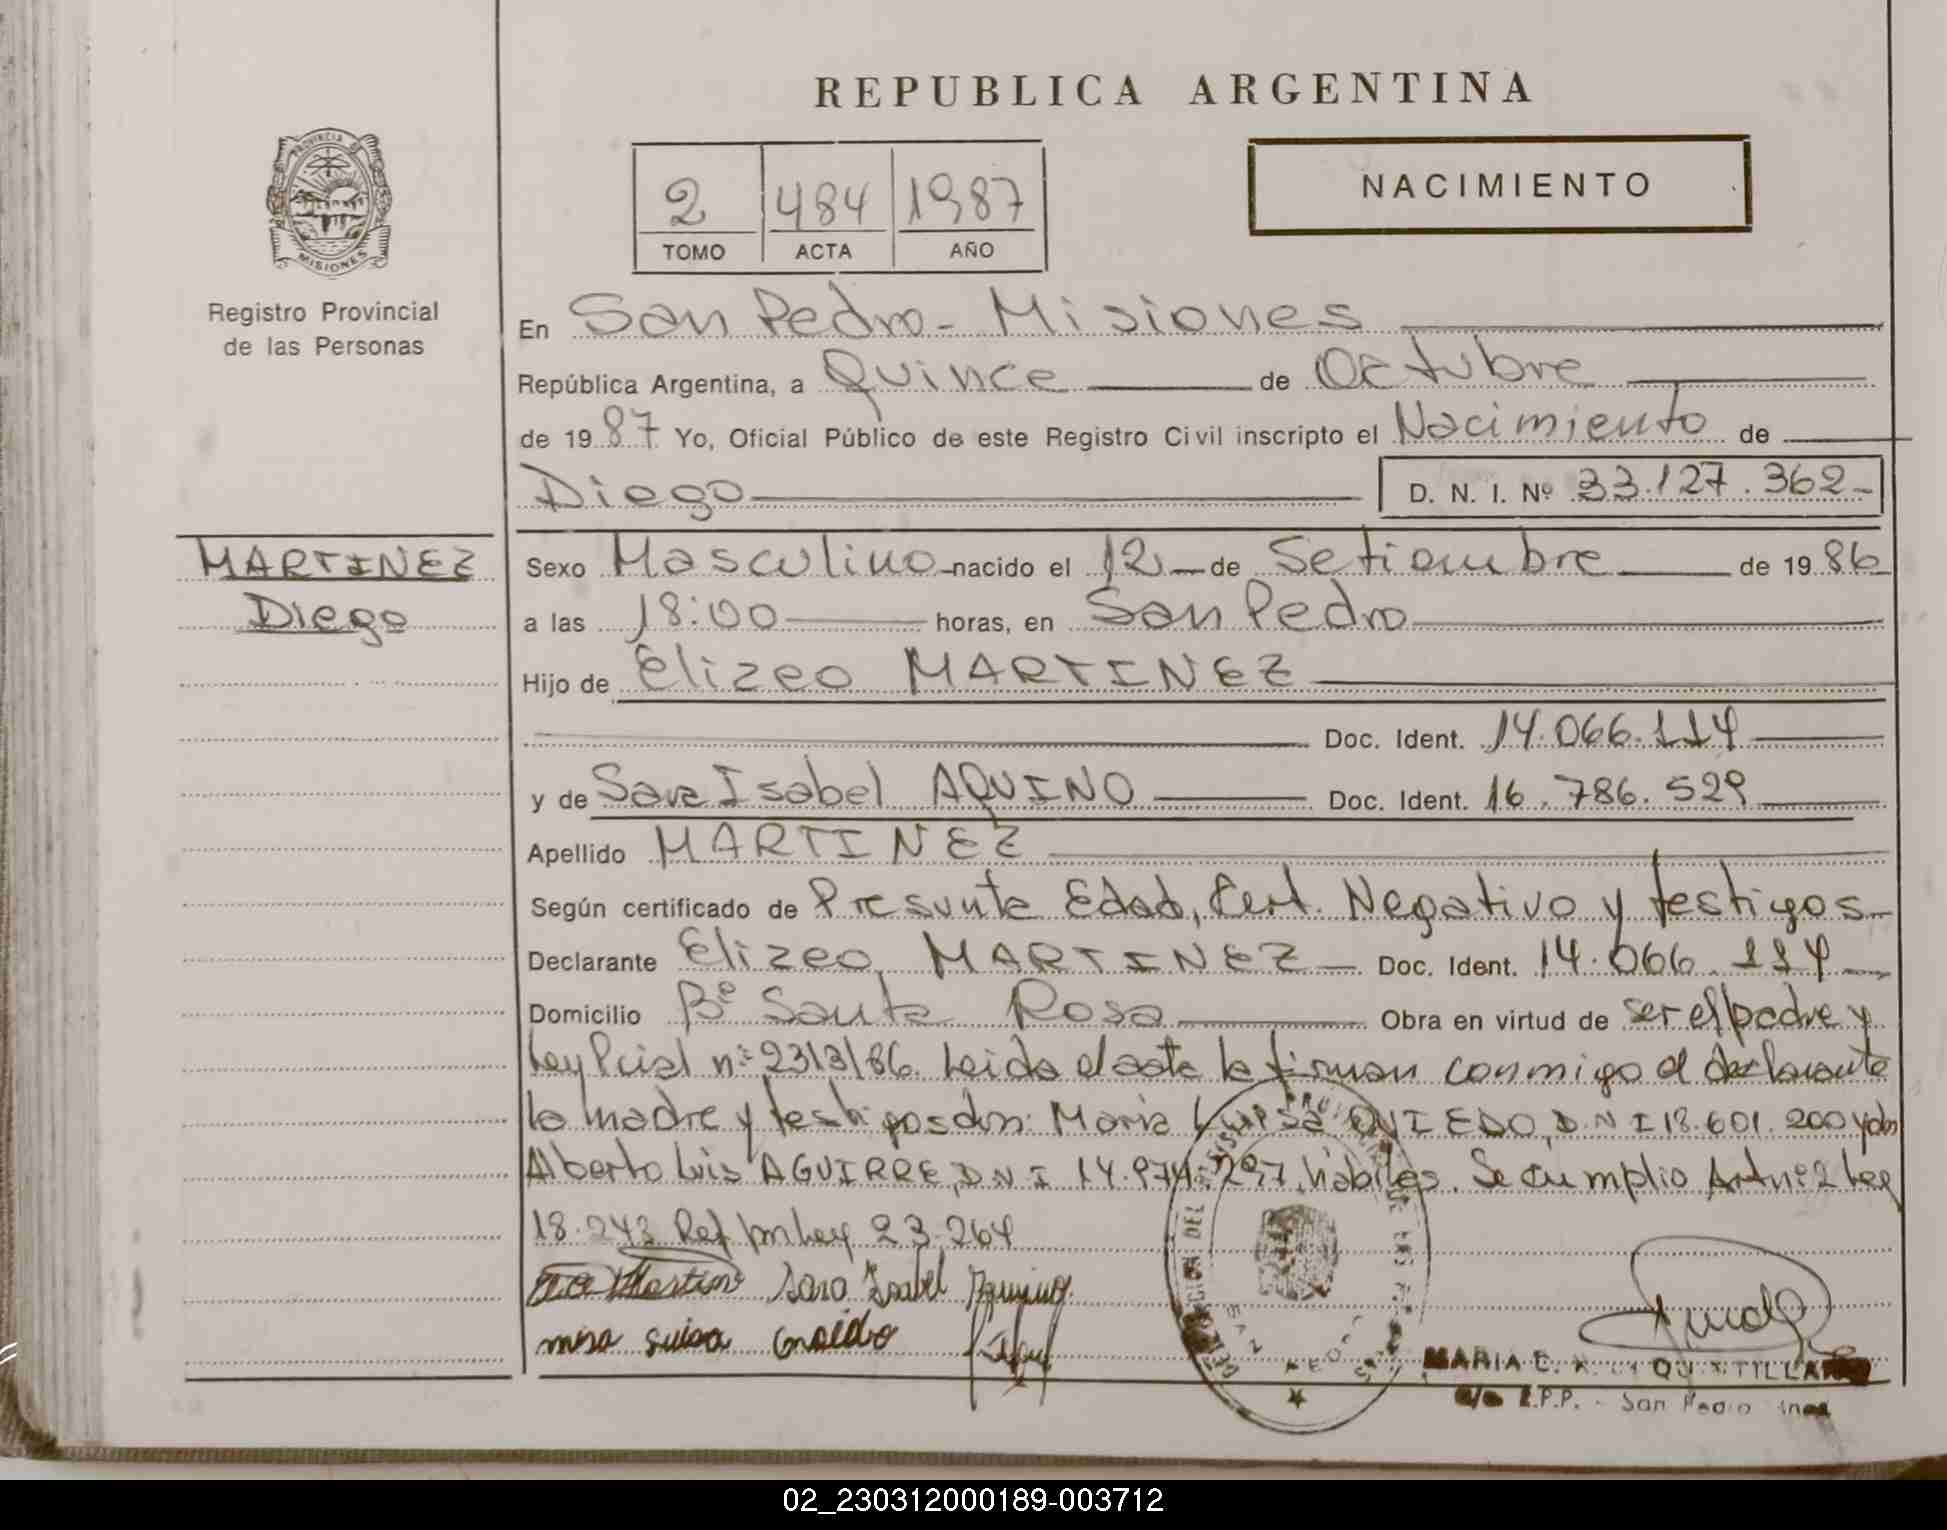 REPUBLICA ARGENTINA
PROVINCIA DE
MISIONES
Registro Provincial
de las Personas
2 484 1987
TOMO ACTA AÑO
NACIMIENTO
En San Pedro - Misiones
República Argentina, a Quince de Octubre
de 1987. Yo, Oficial Público de este Registro Civil inscripto el Nacimiento de
Diego D. N. I. Nº 33.127.362-
MARTINEZ
Diego
Sexo Masculino nacido el 12 de Setiembre de 1986
a las 18:00 horas, en San Pedro
Hijo de Elizeo MARTINEZ
Doc. Ident. 14.066.114
y de Sara Isabel AQUINO Doc. Ident. 16.786.529
Apellido MARTINEZ
Según certificado de Presunta Edad, Cert. Negativo y testigos
Declarante Elizeo MARTINEZ Doc. Ident. 14.066.114
Domicilio Bº Santa Rosa Obra en virtud de ser el padre y
Ley Pcial nº 2313/86. Leida el acta la firman conmigo el declarante
la madre y testigos dn: Maria Luisa OVIEDO, D N I 18.601.200 y dn
Alberto Luis AGUIRRE, D.N.I 14.974.297, hábiles. Se cumplio Art nº 2 Ley
18.243 Ref por Ley 23.264
Sara Isabel Aquino
MARIA E. QUINTILLA
San Pedro
02_230312000189-003712